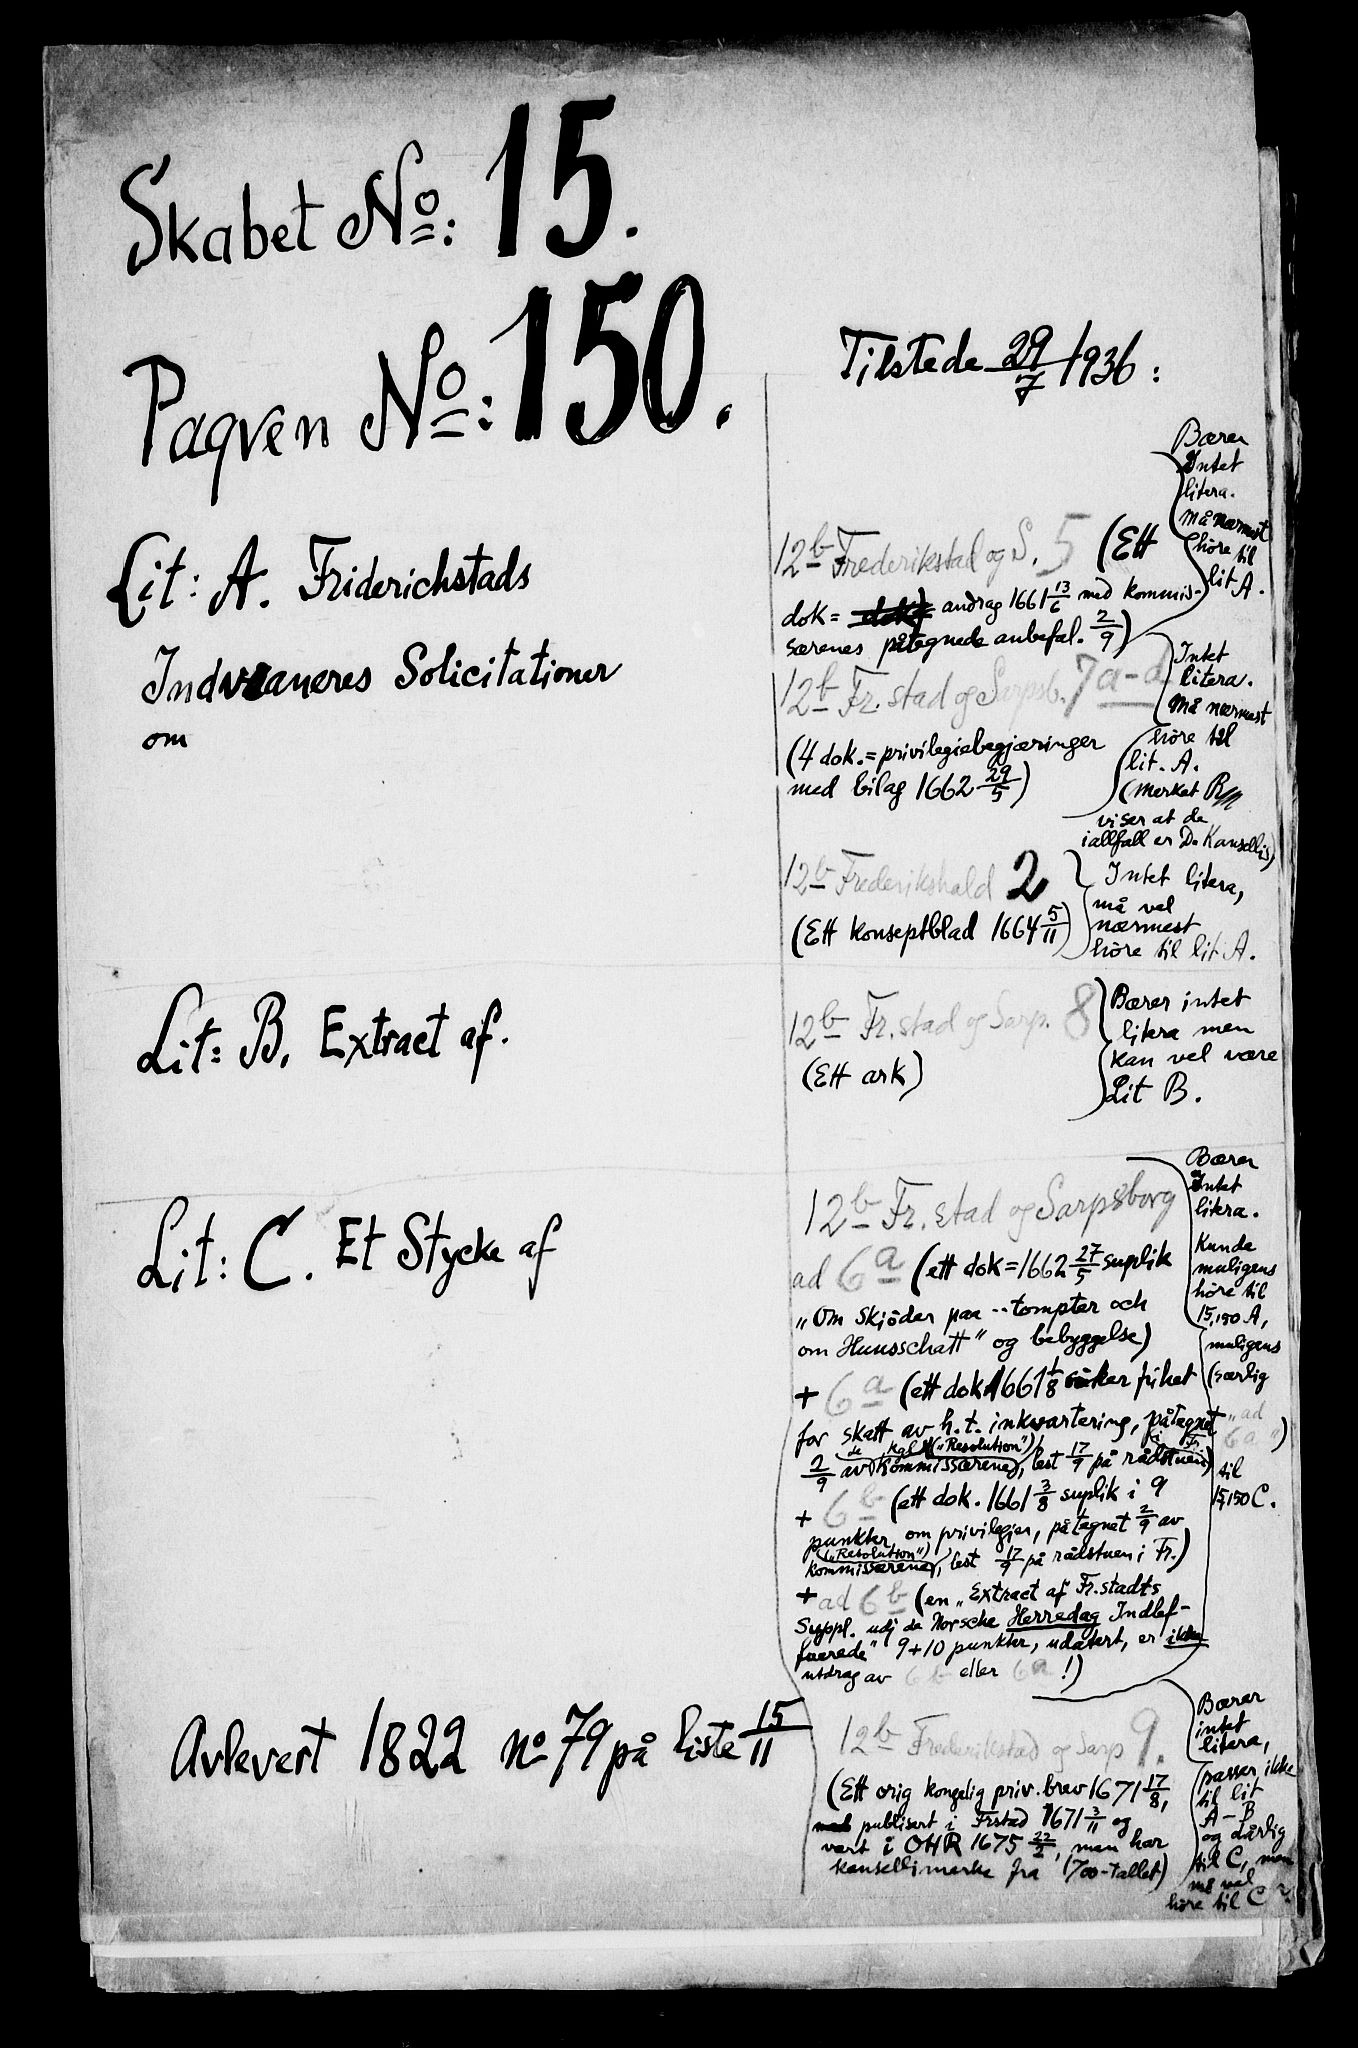 Skabet No: 15.
Paqven No: 150.
Lit: A. Friderichstads
Indvaaneres Solicitationer
om
Lit: B. Extract af.
Lit: C. Et Stycke af
Avlevert 1822 no 79 på liste 15/11
Tilstede 29/7 1936:
12b Frederikstad og S. 5 (Ett
dok = andrag 1661 13/6 med kommis-
særenes påtegnede anbefal. 2/9)
Bærer
Intet
litera.
Må nærmest
høre til
lit A.
12b Fr. stad og Sarpsb. 7a-d
(4 dok. = privilegiebegjæringer
med bilag 1662 29/5)
Intet
litera.
Må nærmest
høre til
lit. A.
(merket
viser at de
iallfall er D. Kansellis)
12b Frederikshald 2
(Ett konseptblad 1664 5/11)
Intet litera,
må vel
nærmest
høre til lit A.
12b Fr. stad og Sarp. 8
(Ett ark)
Bærer intet
litera men
kan vel være
Lit B.
12b Fr. stad og Sarpsborg
ad 6a (ett dok = 1662 27/5 suplik
"Om Skjöder paa -- tompter och
om Huusschatt" og bebyggelse)
+ 6a (ett dok 1661 1/8 søker frihet
for skatt av h.t. inkvartering, påtegnet
2/9 av de kgl. kommissærene ("Resolution"), lest 17/9 på rådstuen i Fr.)
+ 6b (ett dok. 1661 3/8 suplik i 9
punkter om privilegier, påtegnet 2/9 av
kommissærene ("Resolution"), lest 17/9 på rådstuen i Fr.)
+ ad 6b (en "Extract af Fr.stadts
Suppl. udj de Norsche Herredag Indlef-
fuerede" 9+10 punkter, udatert, er ikke
utdrag av 6b eller 6a!)
Bærer
Intet
litera.
Kunde
muligens
høre til
15,150 A,
muligens
(særlig
"ad
6a")
til
15,150 C.
12b Frederikstad og Sarp 9.
(Ett orig kongelig priv. brev 1671 17/8,
publisert i Frstad 1671 3/11 og
vart i OHR 1675 22/2, men har
kansellimerke fra 1700-tallet)
Bærer
intet
litera,
passer ikke
til lit
A-B
og dårlig
til C, men
må vel
høre til C